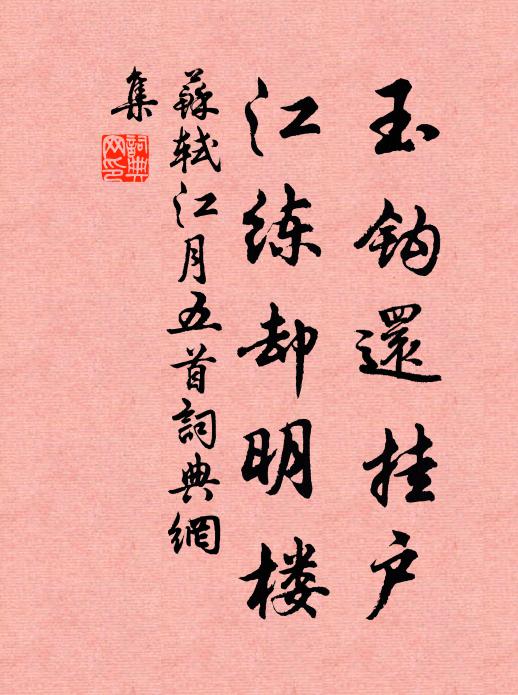 玉鈎還挂户
江练却明楼
蘇轼江月五首詞典網
集
詞典網印